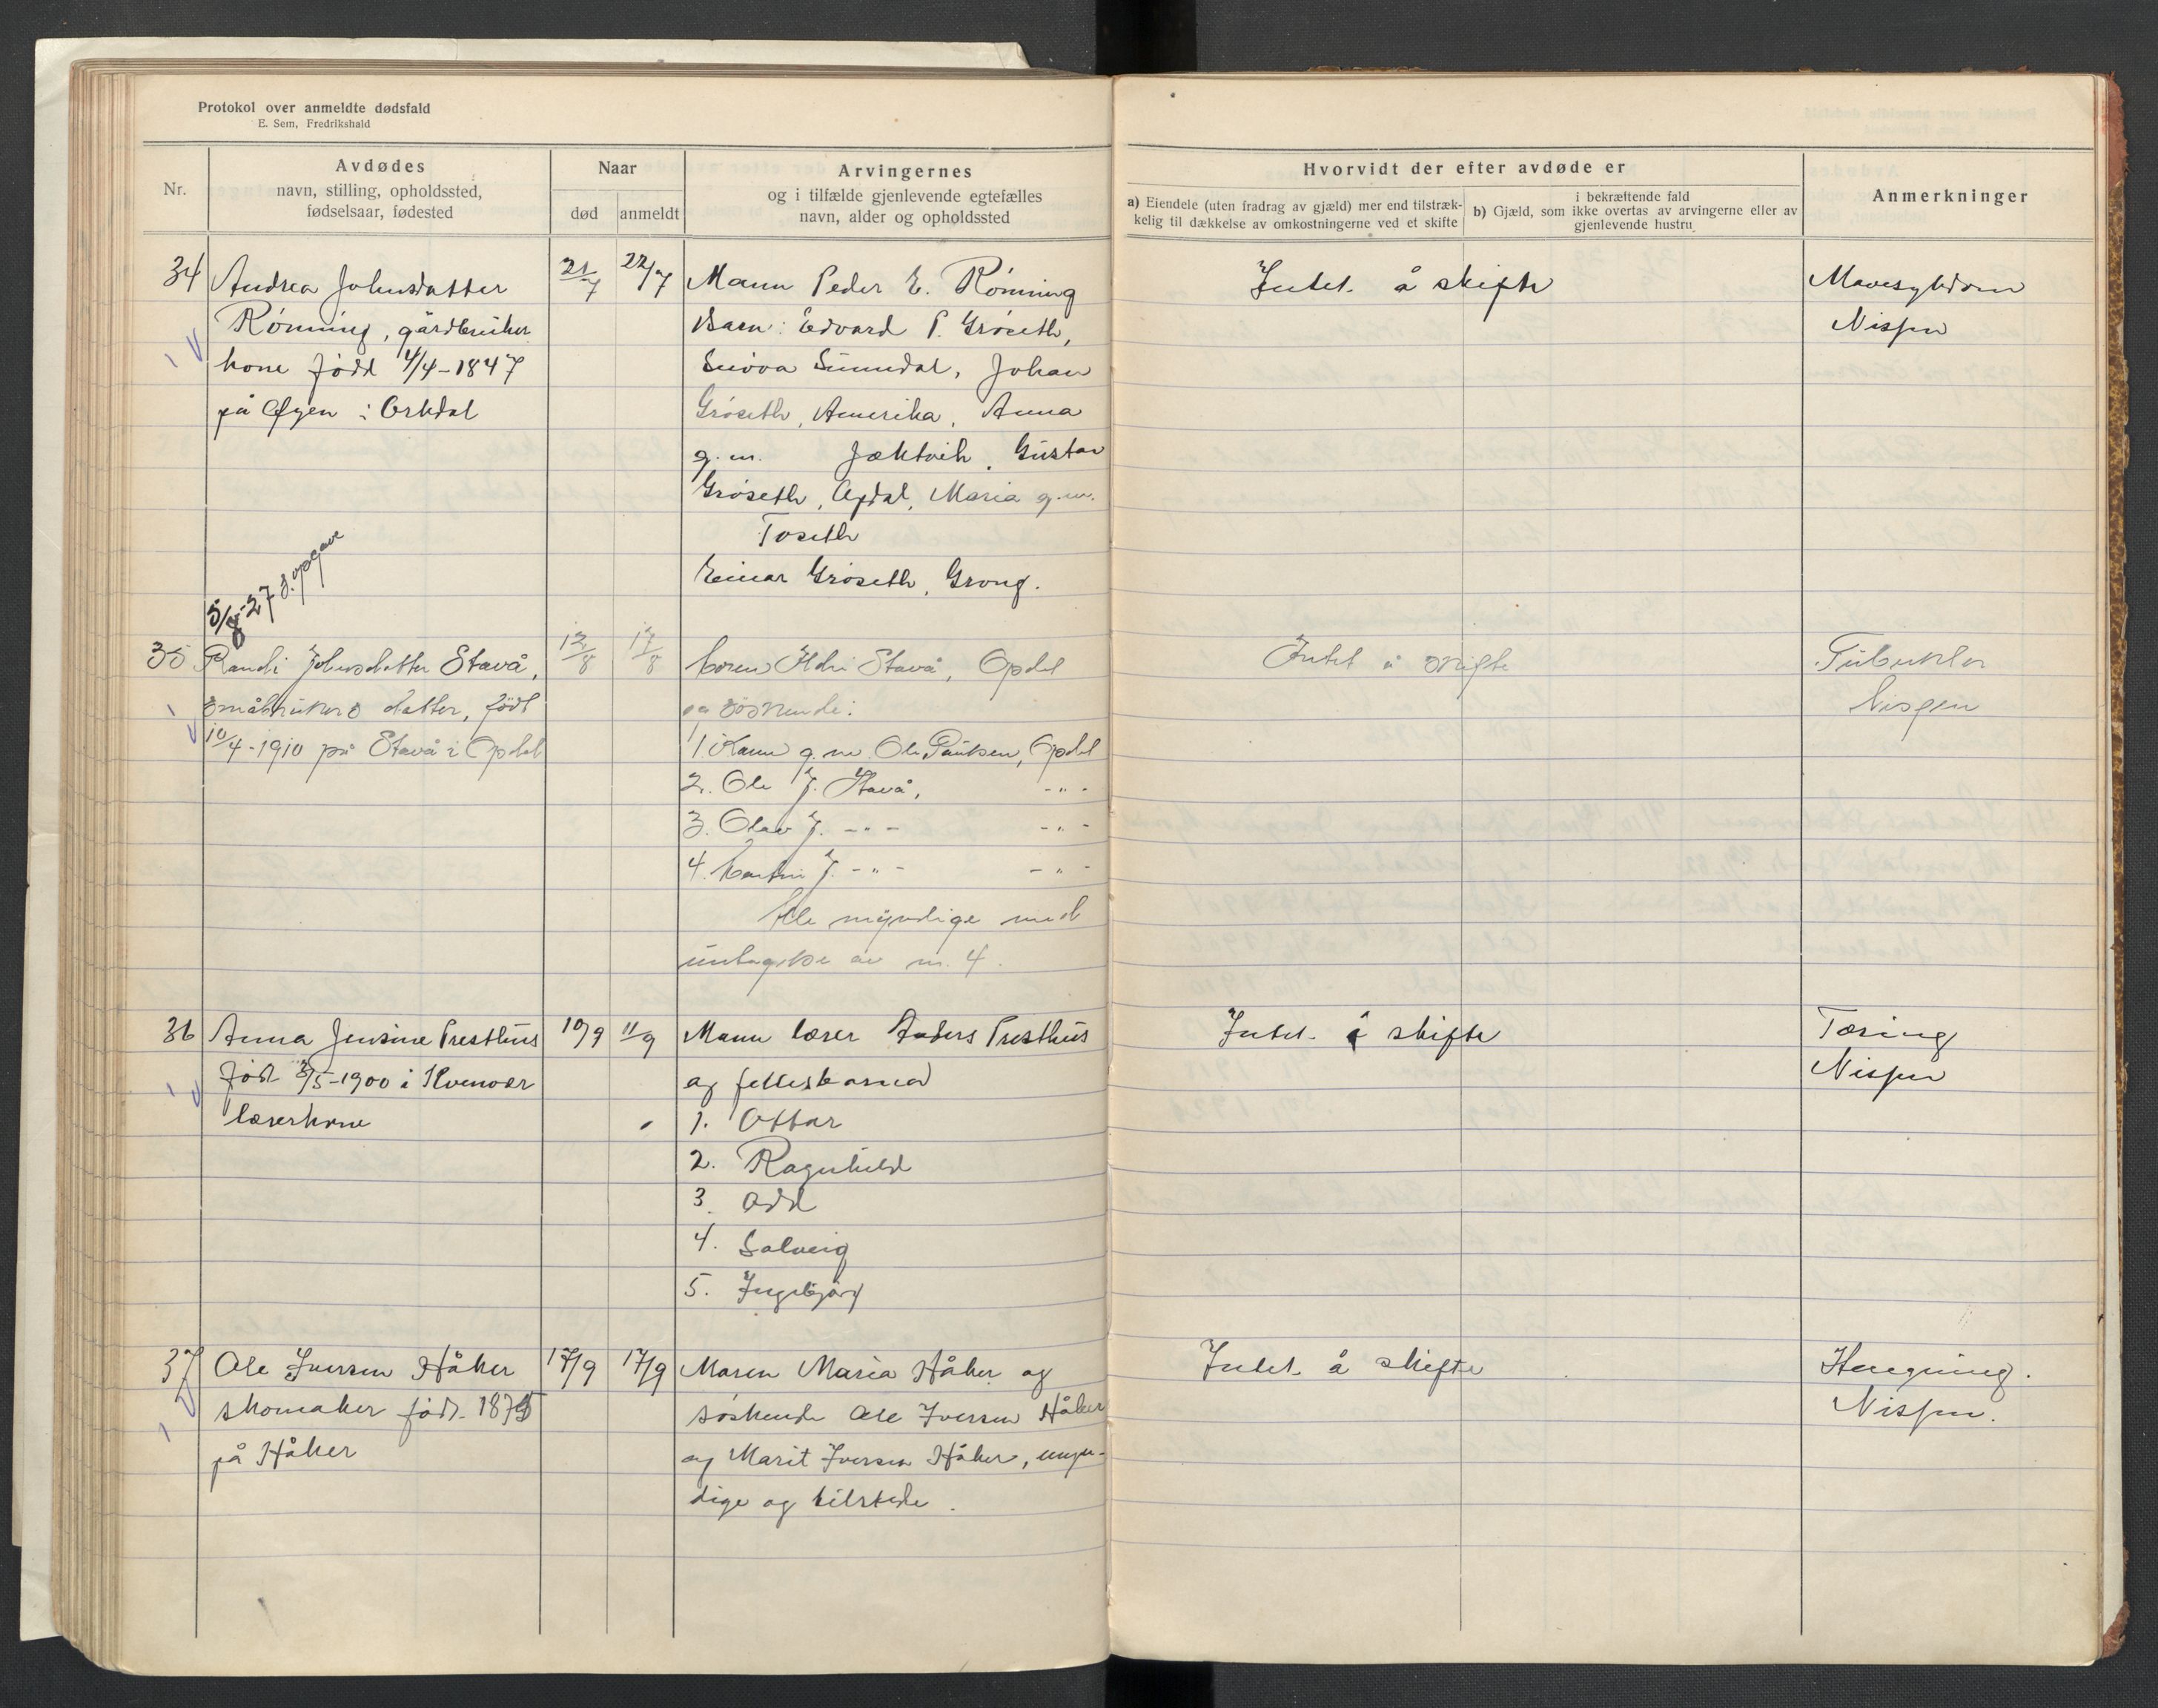 Protokol over anmeldte dødsfald
E. Sem, Fredrikshald
Nr.
Avdødes
navn, stilling, opholdssted,
fødselsaar, fødested
Naar
død
anmeldt
Arvingernes
og i tilfælde gjenlevende egtefælles
navn, alder og opholdssted
Hvorvidt der efter avdøde er
a) Eiendele (uten fradrag av gjæld) mer end tilstræk-
kelig til dækkelse av omkostningerne ved et skifte
i bekræftende fald
b) Gjæld, som ikke overtas av arvingerne eller av
gjenlevende hustru
Anmerkninger
34
Andrea Johnsdatter
Rönning, gårdbruker
kone född 4/4-1847
på Øyen i Orkdal
21/7
22/7
Mann Peder E. Rönning
Barn: Edvard P. Gröseth,
Sunndal, Johan
Gröseth, Amerika, Anna
g.m. Jæktvik, Gustav
Gröseth, Opdal, Maria g.m.
Toseth
Einar Gröseth, Grong.
Intet å skifte
Mavesykdom
Nisjen
5/8-27 3. opgave
35
Randi Johnsdatter Stavå,
småbrukers datter, född
10/4-1910 på Stavå i Opdal
12/8
17/8
Moren Ildri Stavå, Opdal
og söskende:
1. Kari g.m. Ole Paulsen, Opdal
2. Ole J. Stavå, -"-
3. Olav J. -"- -"-
4. J. -"- -"-
Alle myndige med
untagelse av nr. 4.
Intet å skifte
Tuberkler
Nisjen
36
Anna Jensine Presthus
föd 3/5-1900 i Kvenvær
lærerkone
10/9
11/9
Mann lærer Anders Presthus
og fellesbarna
1. Ottar
2. Ragnhild
3. Odd
4. Solveig
5. Ingebjörg
Intet å skifte
Tæring
Nisjen
37
Ole Iversen Håker
skomaker föd. 1875
på Håker
17/9
17/9
Moren Maria Håker og
söskende Ole Iversen Håker
og Marit Iversen Håker, myn-
dige og tilstede.
Intet å skifte
Hengning.
Nisjen.